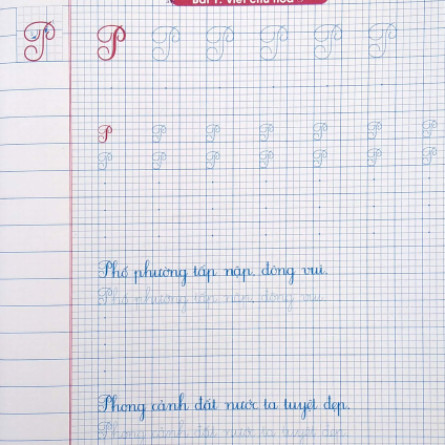 Bài 1: Viết chữ hoa
P P P P P P P
P P P P P P P
P P P P P P P
Phố phường tấp nập, đông vui.
Phố phường tấp nập, đông vui.
Phong cảnh đất nước ta tuyệt đẹp.
Phong cảnh đất nước ta tuyệt đẹp.